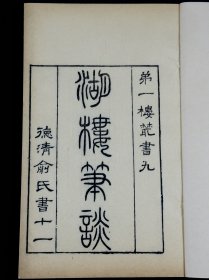 第一樓叢書九
湖樓筆談
德清俞氏書十一